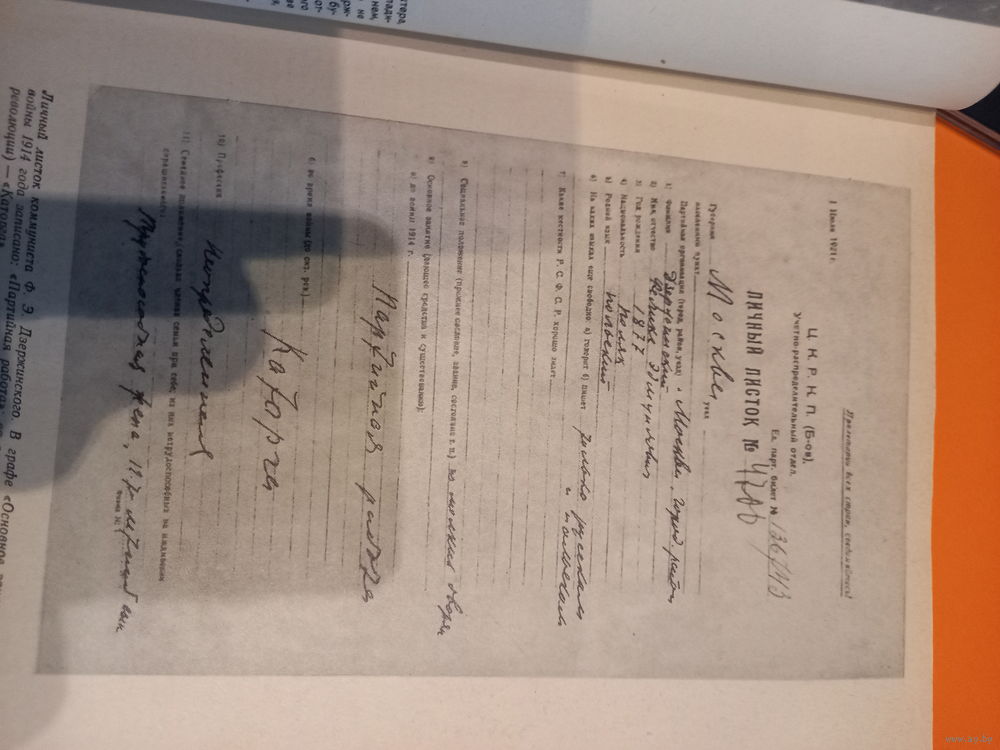 1 Июля 1921 г.
Пролетарии всех стран, соединяйтесь!
Ц. К. Р. К. П. (Б-ов).
Учетно-распределительный отдел.
Ед. парт. билет №
ЛИЧНЫЙ ЛИСТОК №
Губерния Москва уезд
населенный пункт
Партийная организация (город, район, уезд) г. Москва, город. район
1) Фамилия Дзержинский
2) Имя, отчество Феликс Эдмундович
3) Год рождения 1877
4) Национальность поляк
5) Родной язык польский
6) На каких языках еще свободно: а) говорит б) пишет только русским и польским
7) Какие местности Р. С. Ф. С. Р. хорошо знает
8) Социальное положение (прежнее сословие, звание, состояние и т. п.) из мелких дворян
9) Основное занятие (дающее средства к существованию):
а) до войны 1914 г.
Партийная работа
б) во время войны (до окт. рев.)
Каторга
10) Профессия
неопределенная
11) Семейное положение, сколько членов семьи при себе, из них нетрудоспособных на иждивении
Трудоспособная жена,
Личный листок коммуниста Ф. Э. Дзержинского. В графе «Основное
войны 1914 года записано: «Партийная работа»;
революции) — «Каторга»
www.ay.by